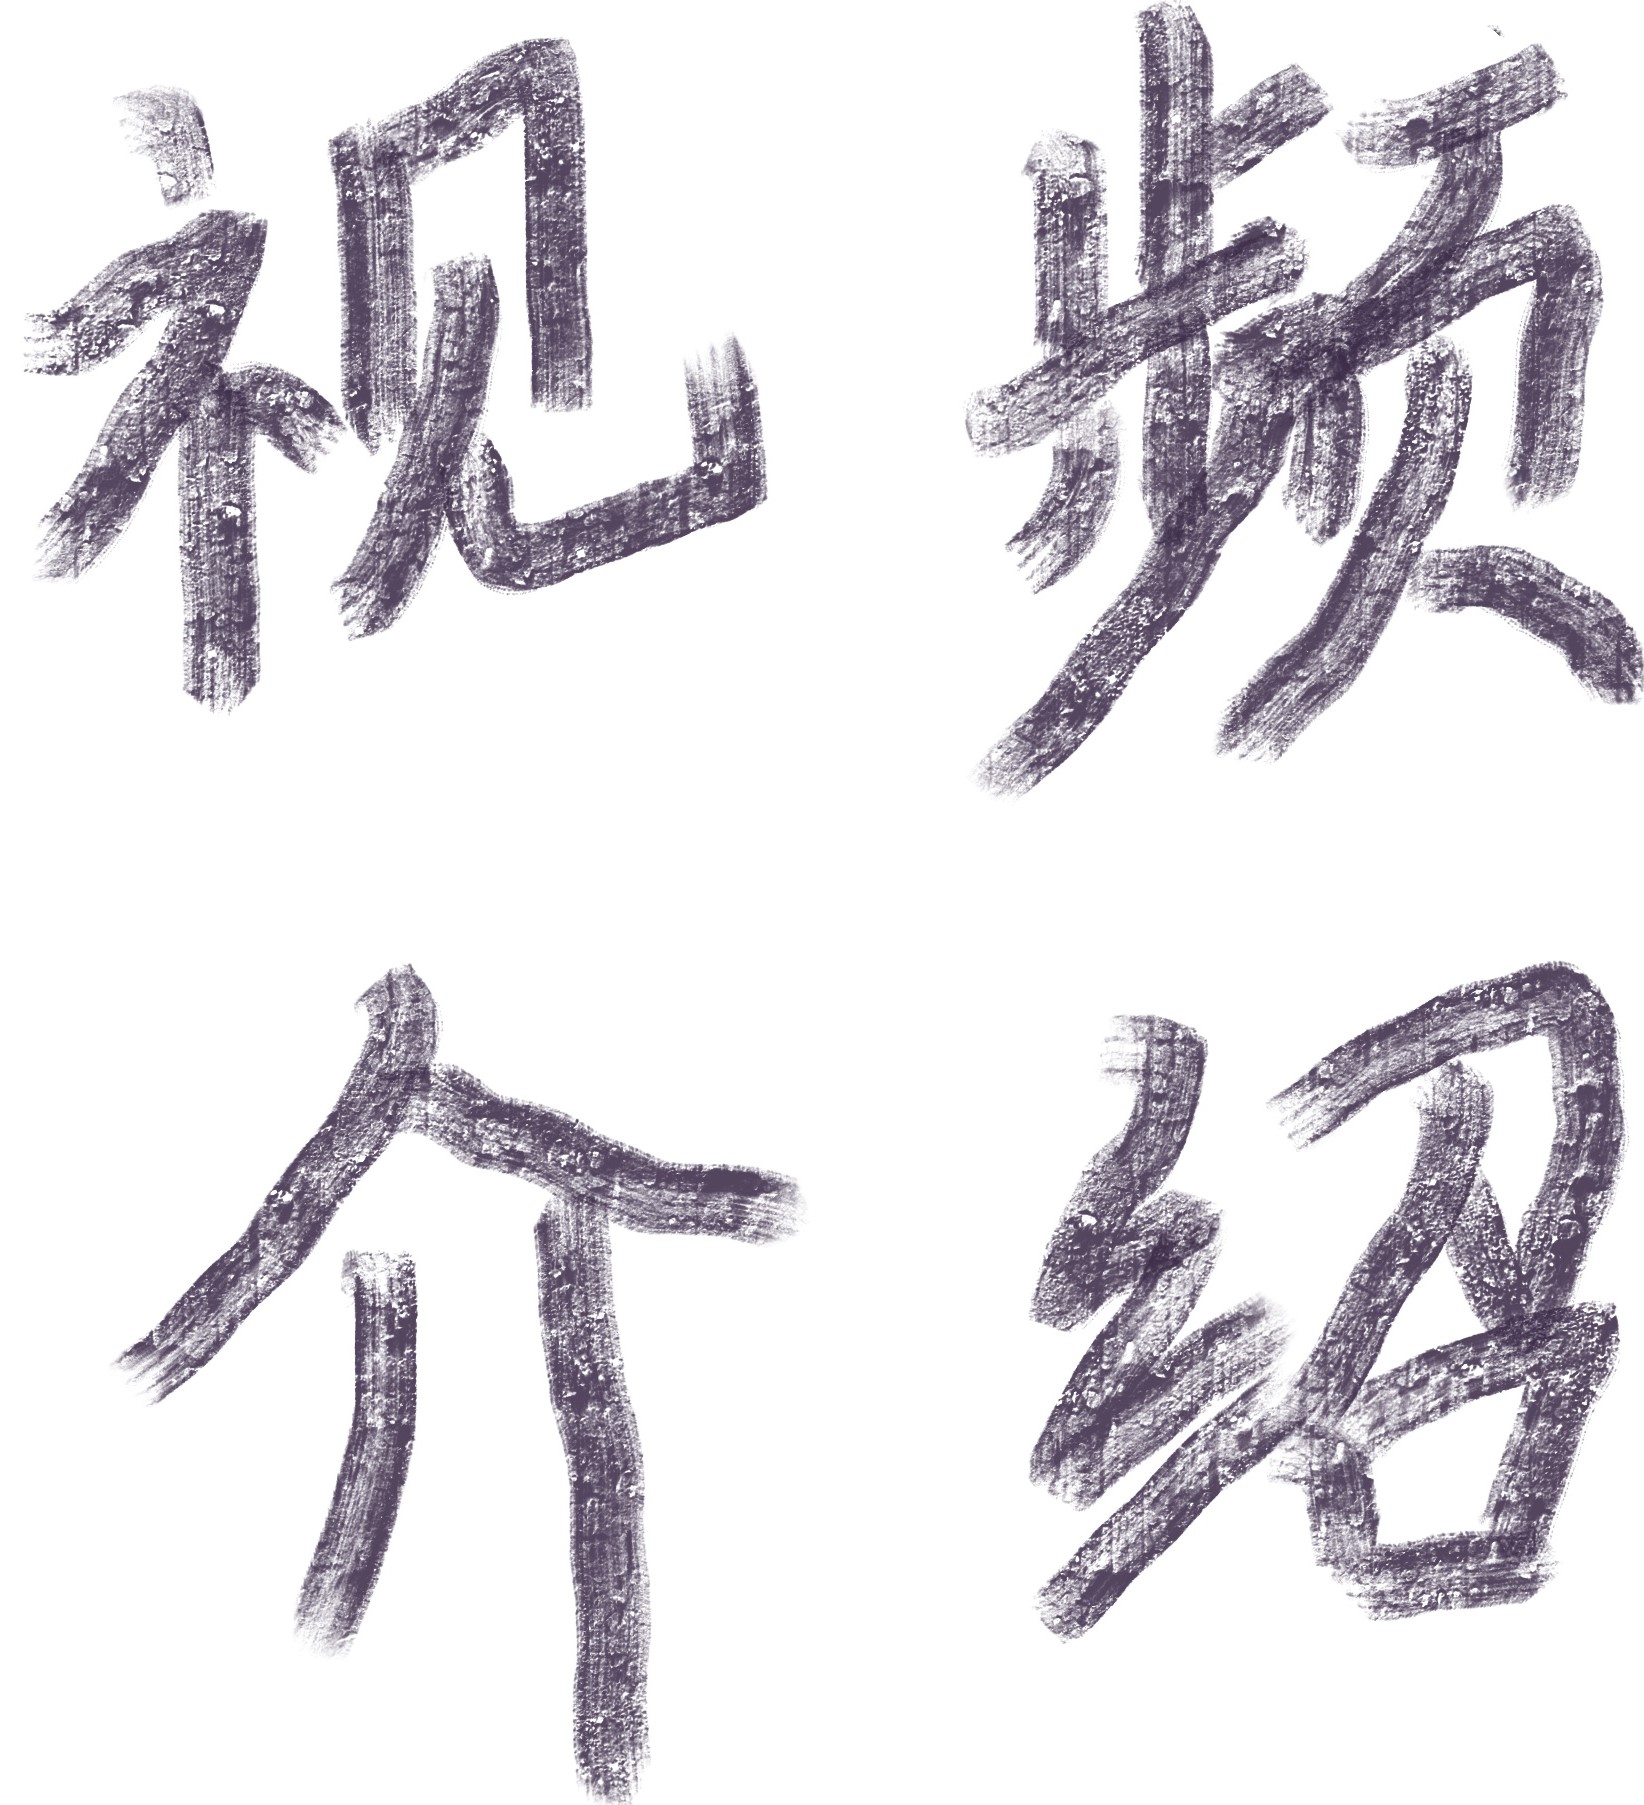 视频
介绍